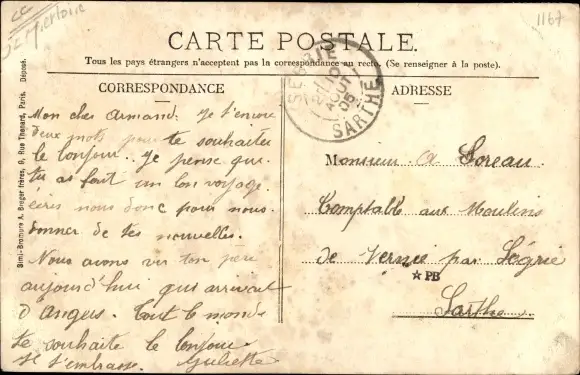 1167
CARTE POSTALE.
Tous les pays étrangers n'acceptent pas la correspondance au recto. (Se renseigner à la poste).
CORRESPONDANCE
ADRESSE
SARTHE
AOUT
05
Simi-Bromure A. Breger frères, 9, Rue Thénard, Paris. Déposé.
Mon cher Armand. Je t'envoie
deux mots pour te souhaiter
le bonjour. Je pense que
tu as fait un bon voyage
écris nous donc pour nous
donner de tes nouvelles.
Nous avons vu ton père
aujourd'hui qui arrivait
d'Angers. Tout le monde
te souhaite le bonjour
Je t'embrasse. Juliette
Monsieur A Loreau.
Comptable aux Moulins
de Vernie par Ségrie
★ PB
Sarthe